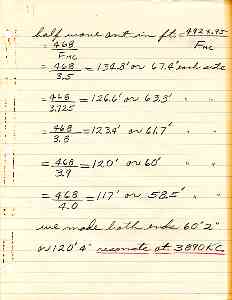 half wave ant in ft. = 492 x .95
F MC
= 468
F MC
= 468 = 134.8' or 67.4' each side
3.5
= 468 = 126.6' or 63.3' " "
3.725
= 468 = 123.4' or 61.7' " "
3.8
= 468 = 120' or 60' " "
3.9
= 468 = 117' or 58.5' " "
4.0
we made both ends 60' 2"
or 120' 4" resonate at 3890 KC